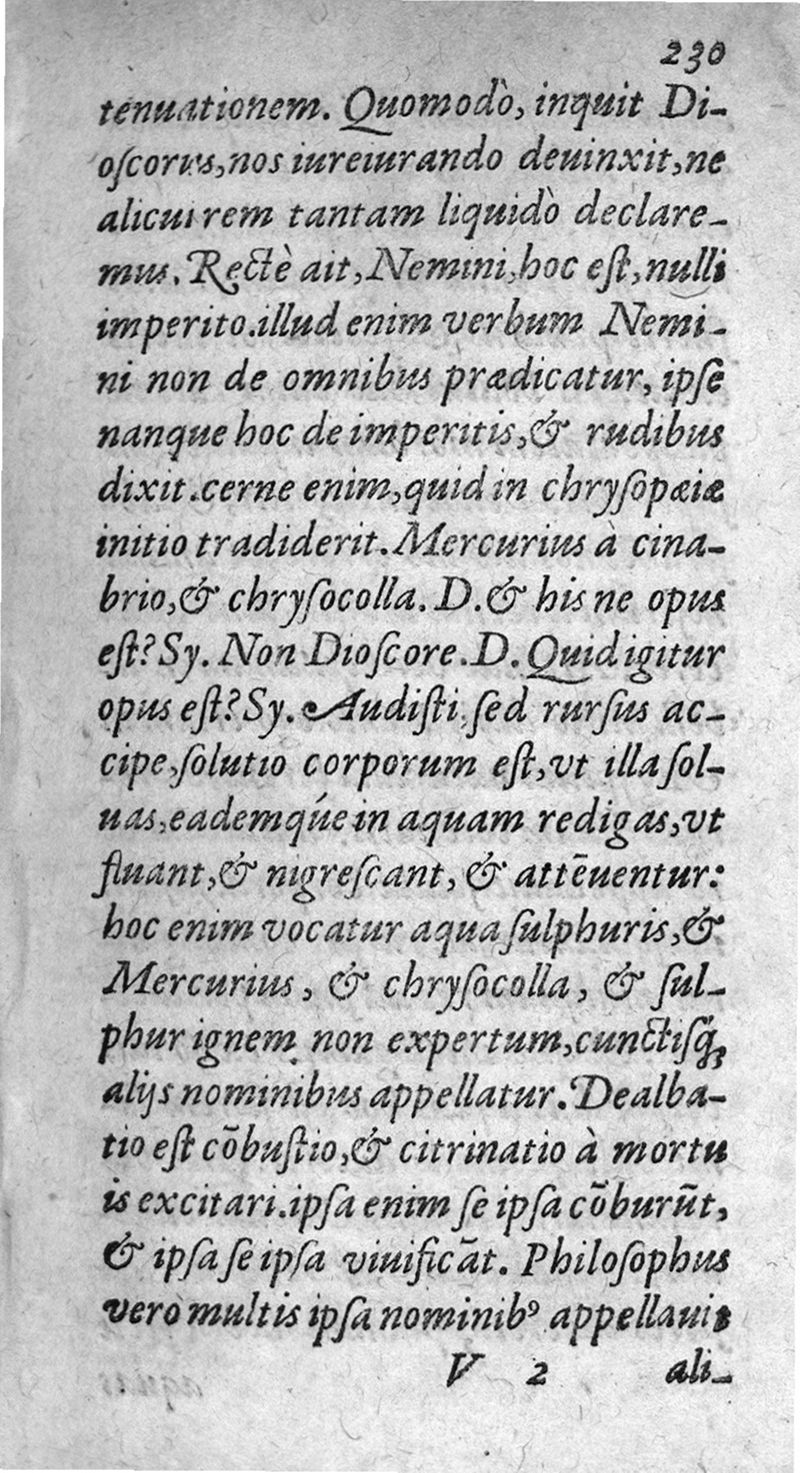 230
tenuationem. Quomodò, inquit Di-
oſcorus, nos iureiurando deuinxit, ne
alicui rem tantam liquidò declare-
mus. Rectè ait, Nemini, hoc eſt, nulli
imperito. illud enim verbum Nemi-
ni non de omnibus prædicatur, ipſe
nanque hoc de imperitis, & rudibus
dixit. cerne enim, quid in chryſopæiæ
initio tradiderit. Mercurius à cina-
brio, & chryſocolla. D. & his ne opus
eſt? Sy. Non Dioſcore. D. Quid igitur
opus eſt? Sy. Audiſti, ſed rurſus ac-
cipe, ſolutio corporum eſt, vt illa ſol-
uas, eademqúe in aquam redigas, vt
fluant, & nigreſcant, & attēuentur:
hoc enim vocatur aqua ſulphuris, &
Mercurius, & chryſocolla, & ſul-
phur ignem non expertum, cunctiſq́;
alijs nominibus appellatur. Dealba-
tio eſt cōbuſtio, & citrinatio à mortu
is excitari. ipſa enim ſe ipſa cōburūt,
& ipſa ſe ipſa viuificāt. Philoſophus
vero multis ipſa nominibꝰ appellauit
V 2 ali-